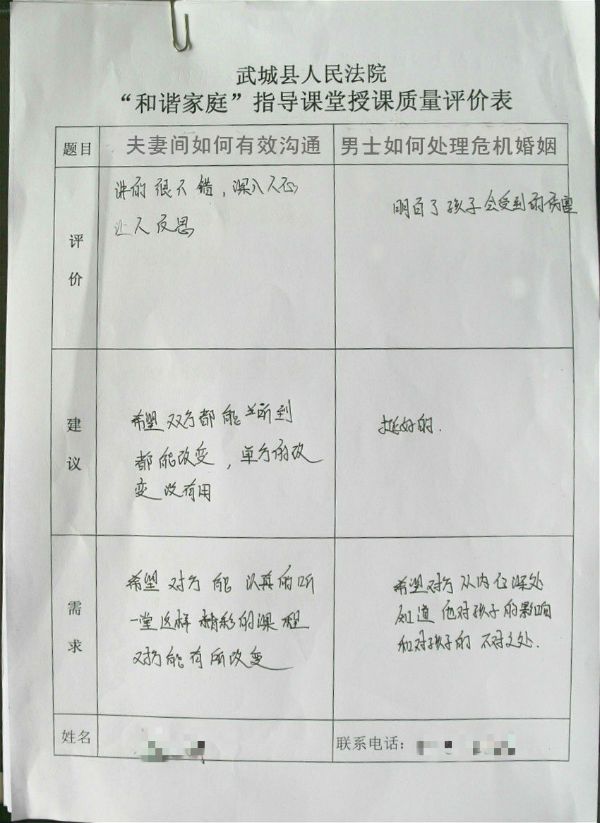 武城县人民法院
“和谐家庭”指导课堂授课质量评价表
题目
夫妻间如何有效沟通
男士如何处理危机婚姻
评价
讲的很不错，深入人心
让人反思
明白了孩子会受到的伤害
建议
希望双方都能听到
都能改变，单方的改
变没有用
挺好的.
需求
希望对方能认真的听
一堂这样精彩的课程
对方能有所改变
希望对方从内心深处
知道他对孩子的影响
和对孩子的不对之处.
姓名
联系电话：